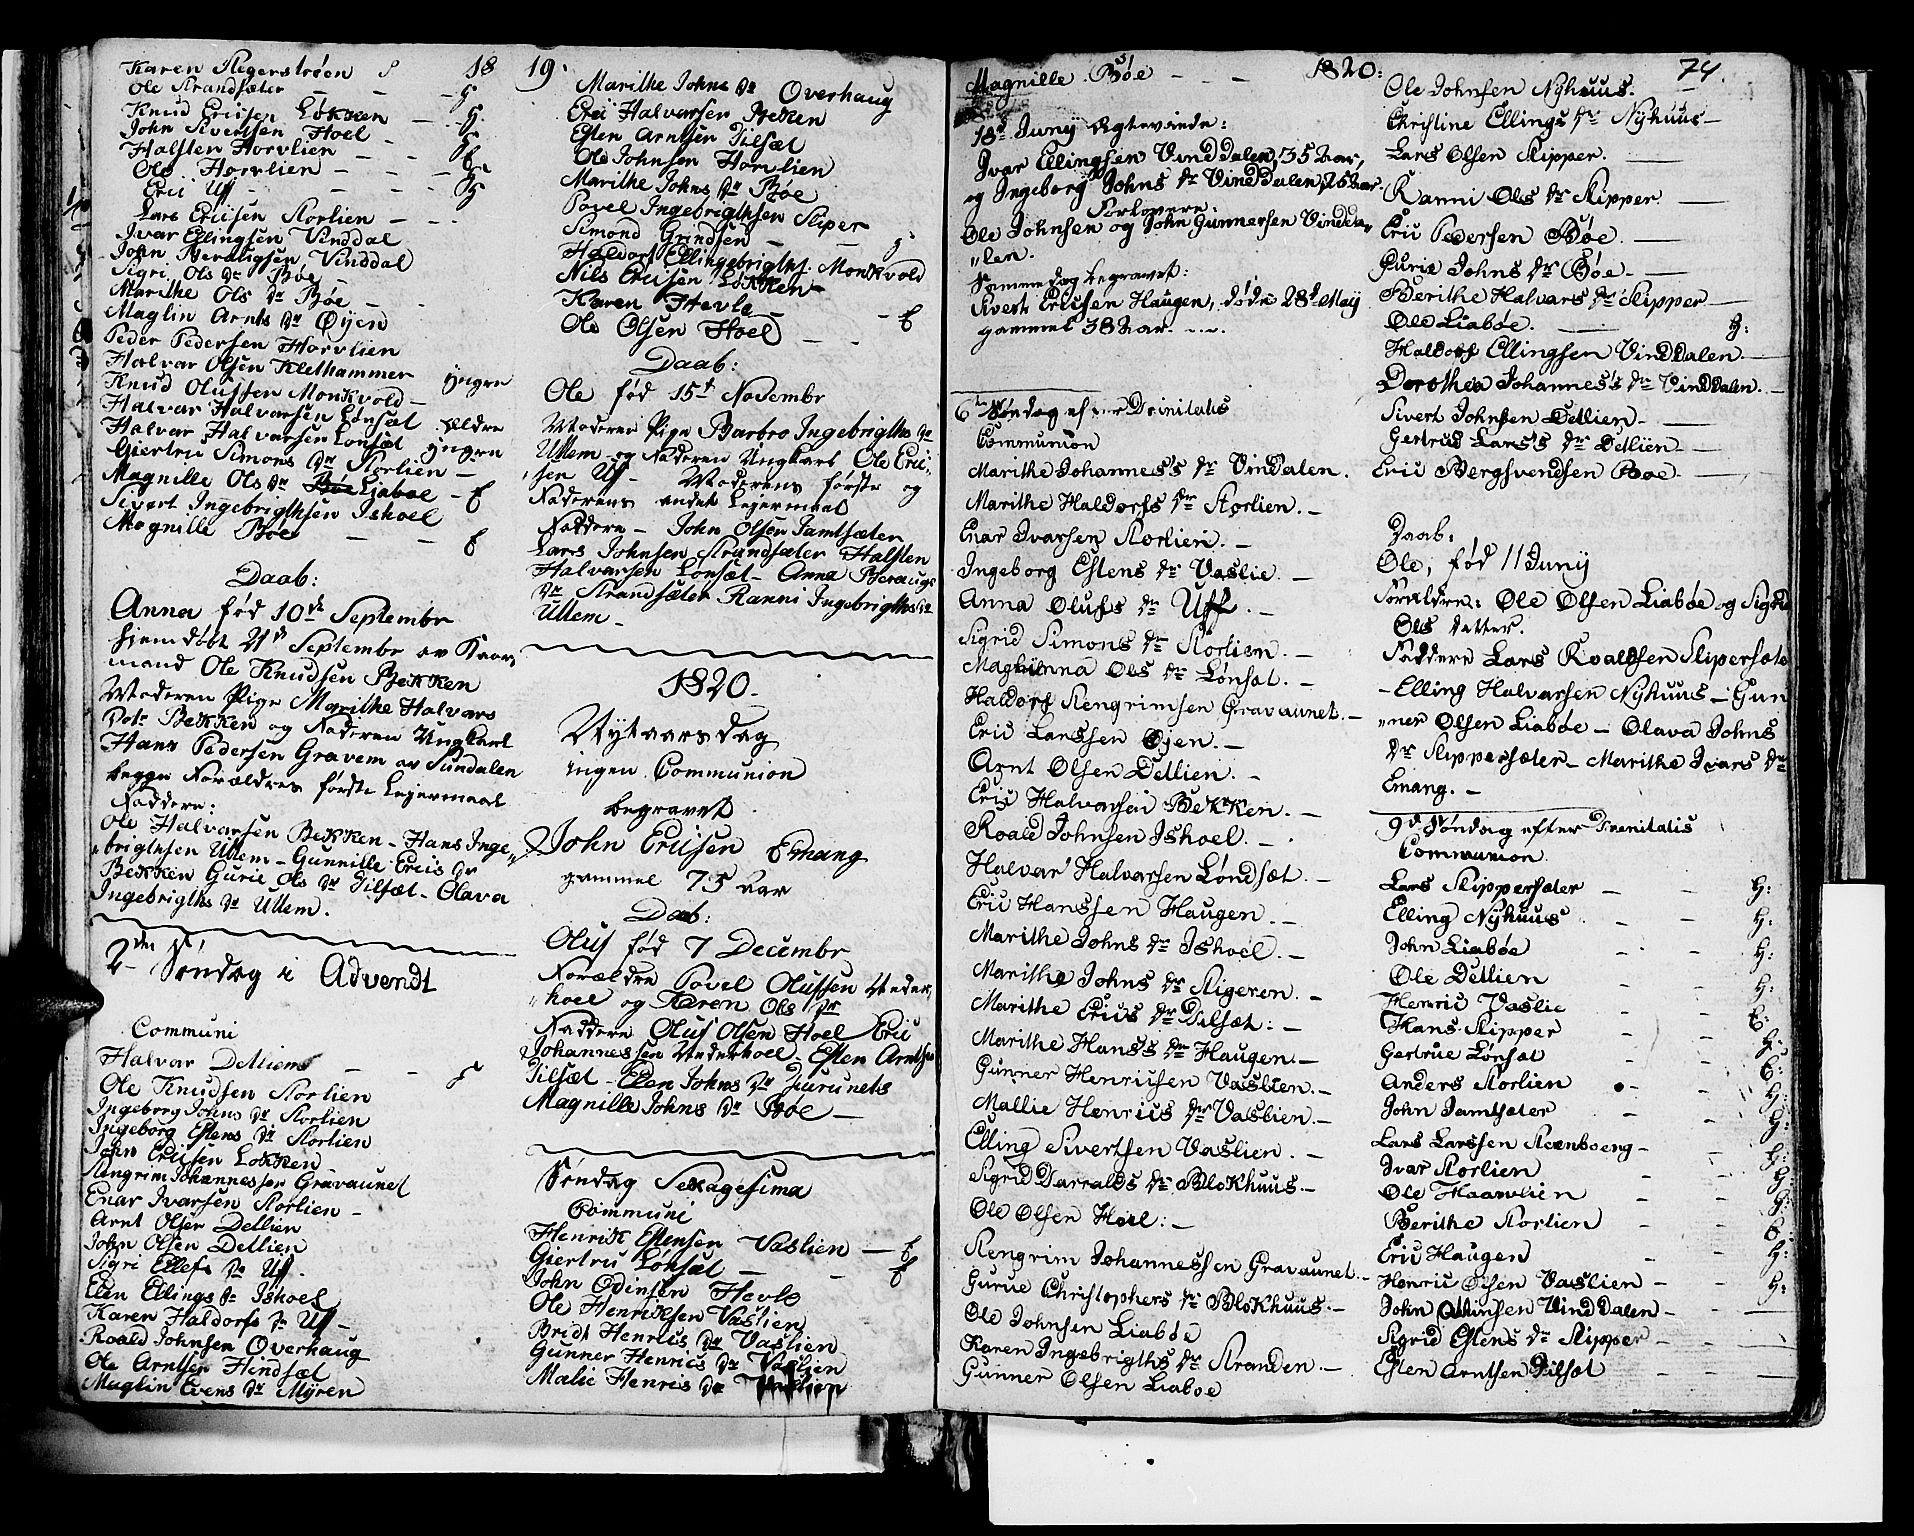 Karen Slegerstrøen S 18
Ole Strandsæter - - - H
Knud Ericsen Løkken - H.
John Sivertsen Hoel - H
Halsten Horvlien - - - E
Ole Horvlien - - - E
Eric Uf - - - - H
Lars Ericsen Storlien - - -
Ivar Ellingsen Vinddal
John Beraugsen Vinddal
Sigri Ols Dr Bøe -
Marithe Ols Dr Bøe - -
Maglin Arnts Dr Øyen
Peder Pedersen Horvlien
Halvar Olsen Klethammer yngre
Knud Olufsen Monkvold -
Halvar Halvarsen Lønsæt ældre
Halvar Halvarsen Lonsæt yngre
Giertru Simons Dr Storlien -
Magnille Ols Dr Liaboe - E
Sivert Ingebrigthsen Ishoel
Magnille Bøe - - E
Daab:
Anna fød 10de Septembr
hjemdøbt 21d Septembr av Kaar,
mand Ole Knudsen Bekken
Moderen Pige Marithe Halvars
Dotr Bekken og Faderen Ungkarl
Hans Pedersen Gravem av Sundalen
begge Forældres første Lejermaal
Faddere:
Ole Halvarsen Bekken - Hans Inge-
brigtsen Ullem - Gunnille Erics Dr
Bekken Gurie Ols Dr Tilsæt - Olava
Ingebrigths Dr Ullem.
2den Søndag i Advendt
Communi
Halvar Detliens - - S
Ole Knudsen Storlien
Ingeborg Johns Dr Storlien
Ingeborg Estens Dr Storlien
John Ericsen Løkken
Stengrim Johannessen Gravaunet
Enar Ivarsen Storlien -
Arnt Olsen Detlien
John Olsen Detlien
Sigri Ellefs Dr Uf.
Elen Ellings Dr Ishoel
Karen Haldorfs Dr Uf -
Roald Johnsen Overhaug
Ole Arntsen Hindsæt
Maglin Evens Dr Myren
19.
Marithe Johns Dr Overhaug
Eric Halvarsen Bekken
Esten Arntsen Tilsæt
Ole Johnsen Horvlien
Marithe Johns Dr Bøe
Povel Ingebrigthsen Sliper
Simond Grindsen - - H
Haldorf Ellingebrigths. Monkvold
Nils Ericsen Løkken -
Karen Hevle - - E
Ole Olsen Hoel - -
Daab:
Ole fød 15t Novembr
Moderen Pige Barbro Ingebrigths Dr
Ullem og Faderen Ungkarl Ole Eric-
sen Uf - Moderens første og
Faderens andet Lejermaal
Faddere - John Olsen Jamtsæter
Lars Johnsen Strandsæter Halsten
Halvarsen Lonsæt - Anna Beraugs
Dr Strandsæter Ranni Ingebrigths Dr
Ullem -
1820.
Nytaarsdag
ingen Communion
begravet
John Ericsen Emang
gammel 75 aar
Daab:
Oluf fød 7 Decembr
Forældre Povel Olufsen Neder,
hoel og Karen Ols Dr
Faddere Oluf Olsen Hoel Eric
Johannessen Nederhoel Esten Arntsen
Tilsæt - Elen Johns Dr Giurunets
Magnille Johns Dr Bøe -
Søndag Sexagesima
Communi
Henrik Estensen Vaslien - E
Giertru Lønsæt - - E
John Odinsen Hevle
Ole Henriksen Vaslien
Bridt Henrics Dr Vaslien
Gunner Henrics Dr Vaslien
Malie Henrics Dr Vaslien
Magnille Bøe - - - 1820: 74.
18d Junij Ægtevinde:
Ivar Ellingsen Vinddalen, 35 Aar,
og Ingeborg Johns Dr Vinddalen, 25 Aar.
Forlovere:
Ole Johnsen og John Gunnersen Vindda,
len.
Samme dag begravet:
Sivert Ericsen Haugen, døde 28d May
gammel 38 Aar. ....
6te Søndag efter Trinitatis
Communion
Marithe Johannes's Dr Vindalen.
Marithe Haldorfs Dr Storlien. -
Enar Ivarsen Storlien. -
Ingeborg Estens Dr Vaslie. -
Anna Olufs Dr Uff. -
Sigrid Simons Dr Storlien. -
Maghienna Ols Dr Lønsæt. -
Haldorf Stengrimsen Gravaunet. -
Eric Larssen Øjen. -
Arnt Olsen Detlien. -
Eric Halvarsen Bekken. -
Roald Johnsen Ishoel. -
Halvar Halvarsen Løndsæt. -
Eric Hanssen Haugen. -
Marithe Johns Dr Ishoel. -
Marithe Johns Dr Stigeren. -
Marithe Erics Dr Tilsæt: -
Marithe Hans's Dr Haugen. -
Gunner Henricsen Vaslien. -
Mallie Henrics Dr Vaslien. -
Elling Sivertsen Vaslien. -
Sigrid Harralds Dr Blokhuus. -
Ole Olsen Hoel: -
Stengrim Johannessen Gravaunet. -
Gurue Christophers Dr Blokhuus. -
Ole Johnsen Liabøe
Karen Ingebrigths Dr Stranden. -
Gunner Olsen Liaboe
Ole Johnsen Nyhuus. -
Christine Ellings Dr Nyhuus -
Lars Olsen Slipper. -
Ranni Ols Dr Slipper. -
Eric Pedersen Bøe. -
Gurie Johns Dr Bøe. -
Berithe Halvars Dr Slipper -
Ole Liabøe. - H:
Haldorf Ellingsen Vinddalen. -
Dorothea Johannes's Dr Vinddalen. -
Sivert Johnsen Detlien. -
Gertrus Lars's Dr Detlien -
Eric Bergsvendsen Boe. -
Daab:
Ole, fød 11 Juny
Foraldre: Ole Olsen Liabøe og Sigrid
Ols datter.
Faddere Lars Roaldsen Slipersæte
- Elling Halvarsen Nyhuus - Gun
ner Olsen Liabøe - Olava Johns
Dr Slippersæter - Marithe Ivars Dr
Emang. -
9d Søndag efter Trenitatis
Communion.
Lars Slippersæter - - H:
Elling Nyhuus - - H:
John Liabøe - - H:
Ole Detlien - - H:
Henric Vaslie - - E:
Hans Slipper - - H:
Gertrue Lønsæt - - E:
Anders Storlien - - H:
John Jamtsæter - - H:
Lars Larssen Steenboeng - - H:
Ivar Storlien - - H:
Ole Haarvlien - - H:
Berithe Storlien - - E:
Eric Haugen - - H:
Henric Olsen Vaslien - - H:
John Ottinsen Vinddalen - - -
Sigrid Estens Dr Slipper - - -
Esten Arntsen Tilsæt - - -